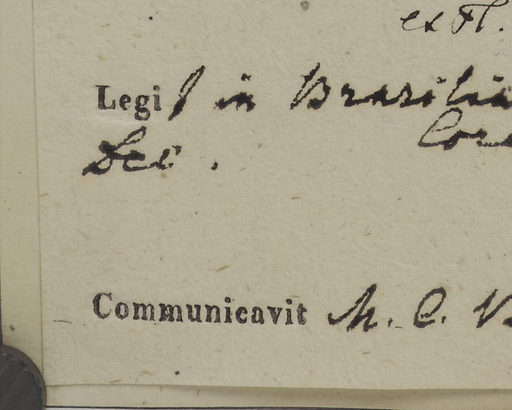 ex Fl.
Legi in Brasilia
Dec.
Communicavit M. C.